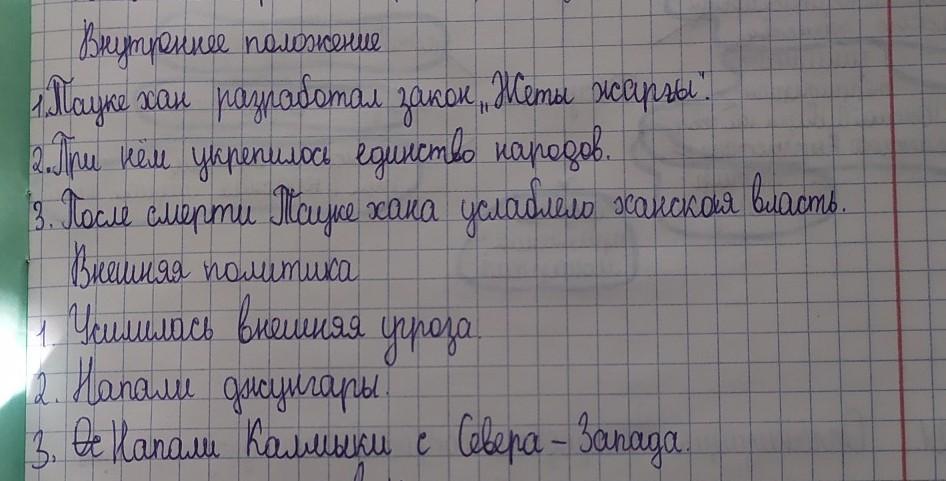 Внутреннее положение
1. Тауке хан разработал закон „Жеты жаргы".
2. При нём укрепилось единство народов.
3. После смерти Тауке хана услаблело ханская власть.
Внешняя политика
1. Усилилась внешняя угроза.
2. Напали джунгары.
3. Напали Калмыки с Севера - Запада.